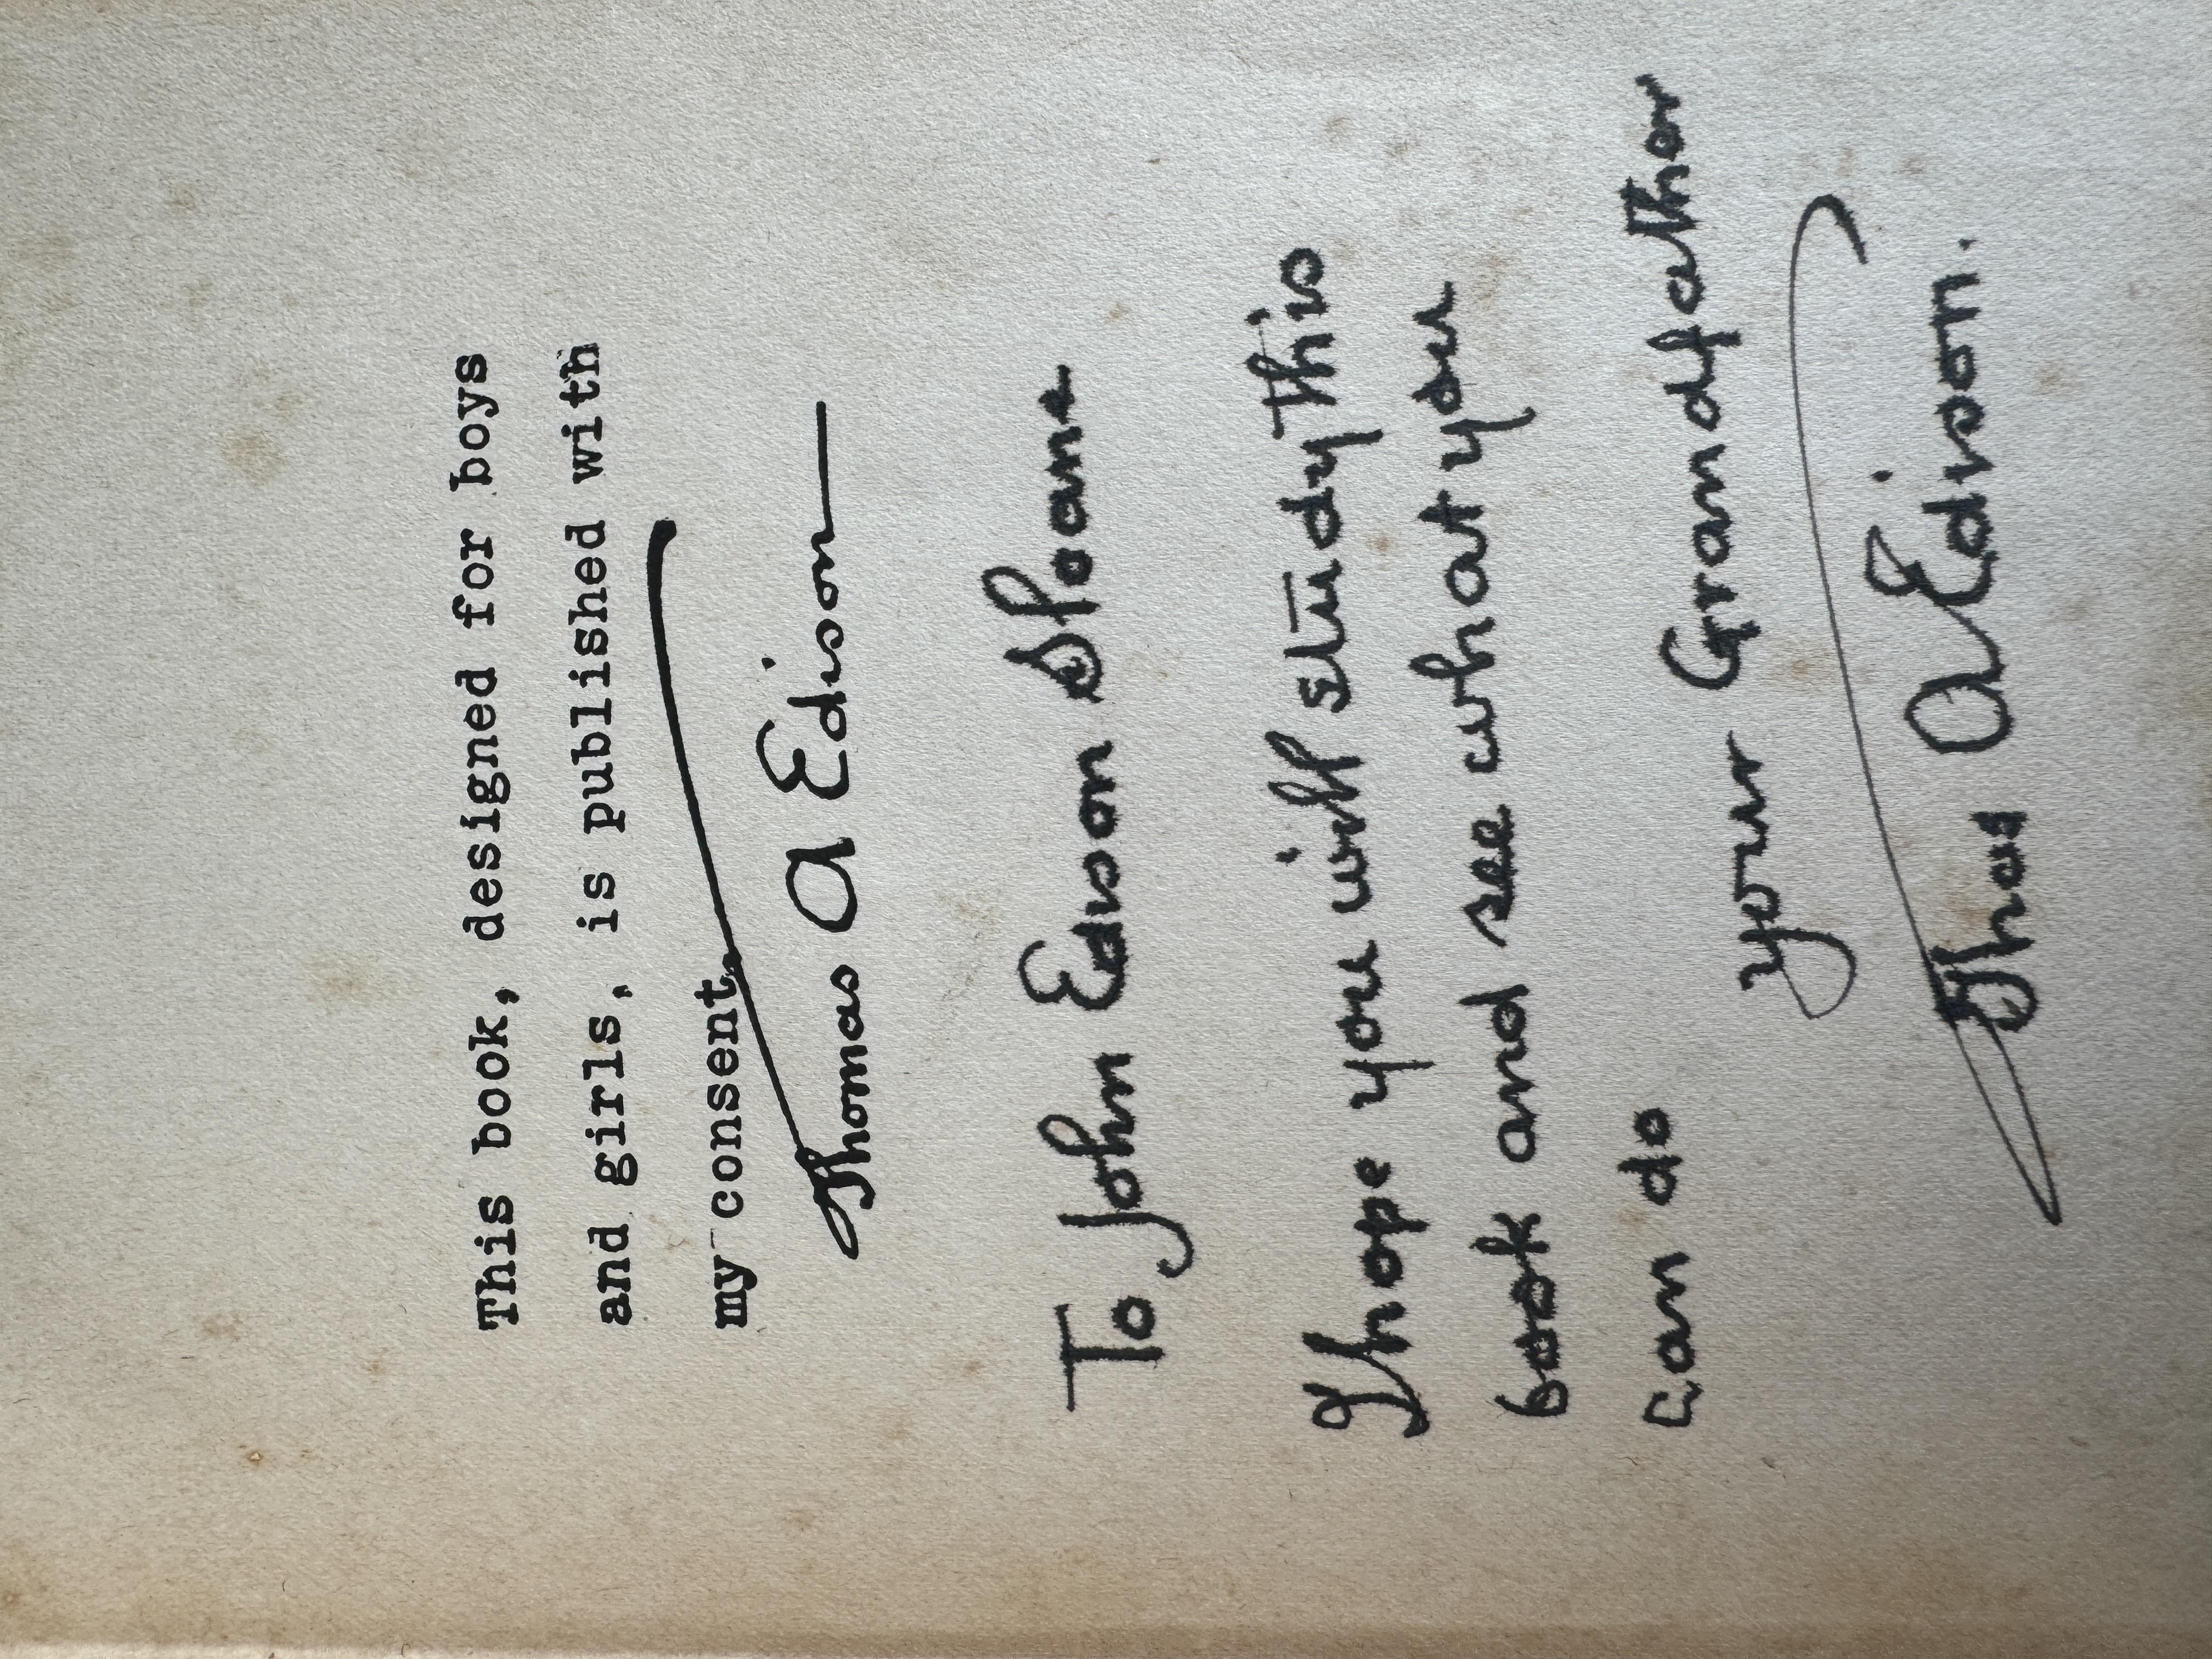 This book, designed for boys
and girls, is published with
my consent.
Thomas A Edison
To John Edison Sloane
I hope you will study this
book and see what you
can do
your Grandfather
Thos A Edison.